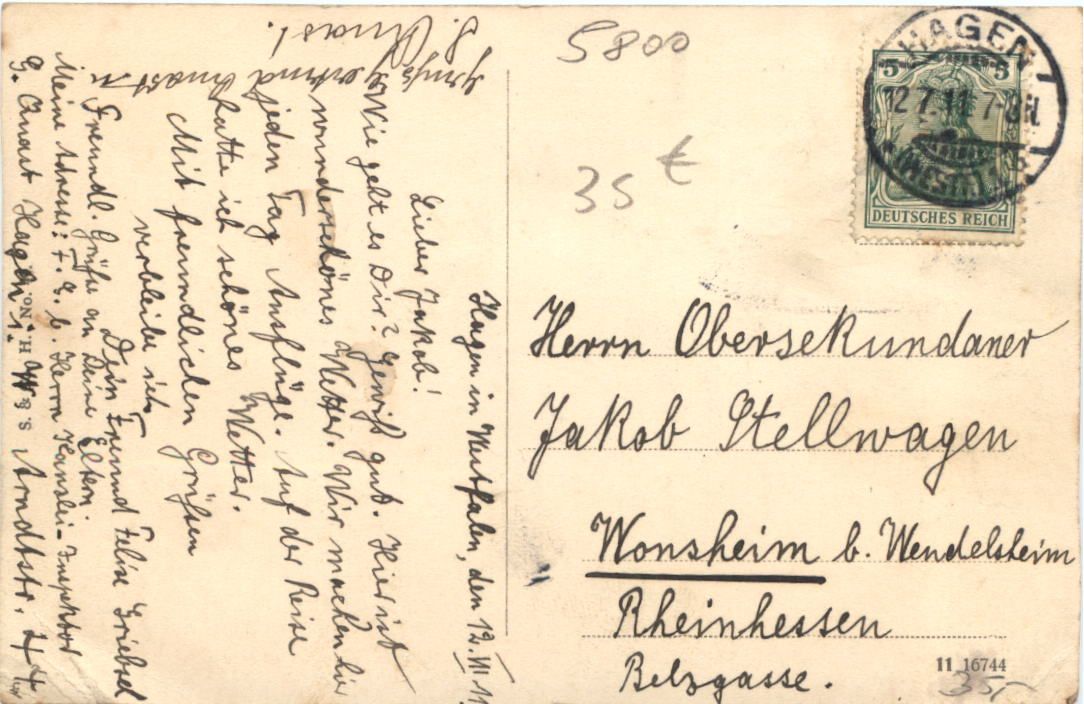 Hagen in Westfalen, den 12. VII 11
Lieber Jakob!
Wie geht es Dir? Gewiß gut. Hier ist
wunderschönes Wetter. Wir machen hier
jeden Tag Ausflüge. Auf der Reise
hatte ich schönes Wetter.
Mit freundlichen Grüßen
verbleibe ich
Dein Freund Felix
Freundl. Grüße an Deine Eltern.
Meine Adresse: F. G. b. Herrn Kanzlei-Inspektor
G. Knast Hagen i. W. Arndtstr. 44
Gruß
H. No. S. & S.
5800
35 €
HAGEN
12.7.11.7-8N.
(WESTF.)
5 5
DEUTSCHES REICH
Herrn Obersekundaner
Jakob Stellwagen
Wonsheim b. Wendelsheim
Rheinhessen
Belzgasse.
11 16744
35,-